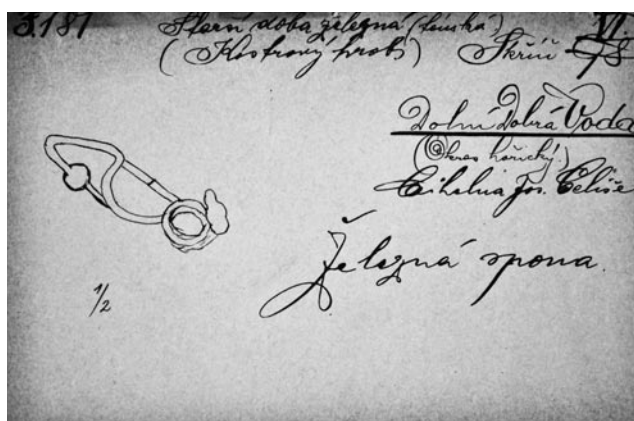 5.181 Starší doba železná (laténská) VI.
(Kostrový hrob) Skříň 98
Dolní Dobrá Voda
(Okres hořický.)
Cihelna Jos. Čeliše
Železná spona.
1/2